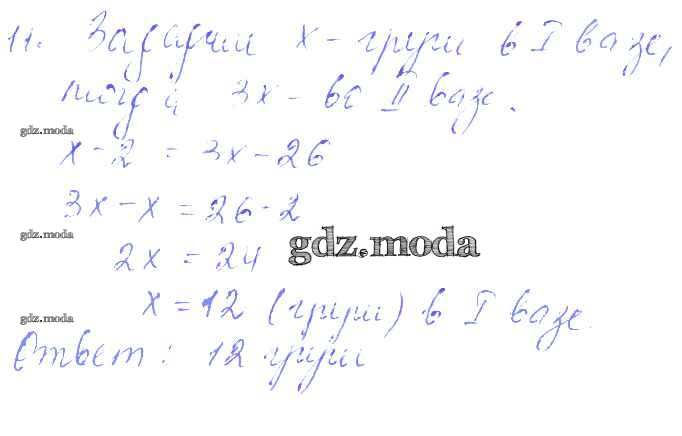 11. Зададим x - груш в I вазе,
тогда 3x - во II вазе.
gdz.moda
x - 2 = 3x - 26
3x - x = 26 - 2
gdz.moda
gdz.moda
2x = 24
x = 12 (груш) в I вазе.
gdz.moda
Ответ: 12 груш